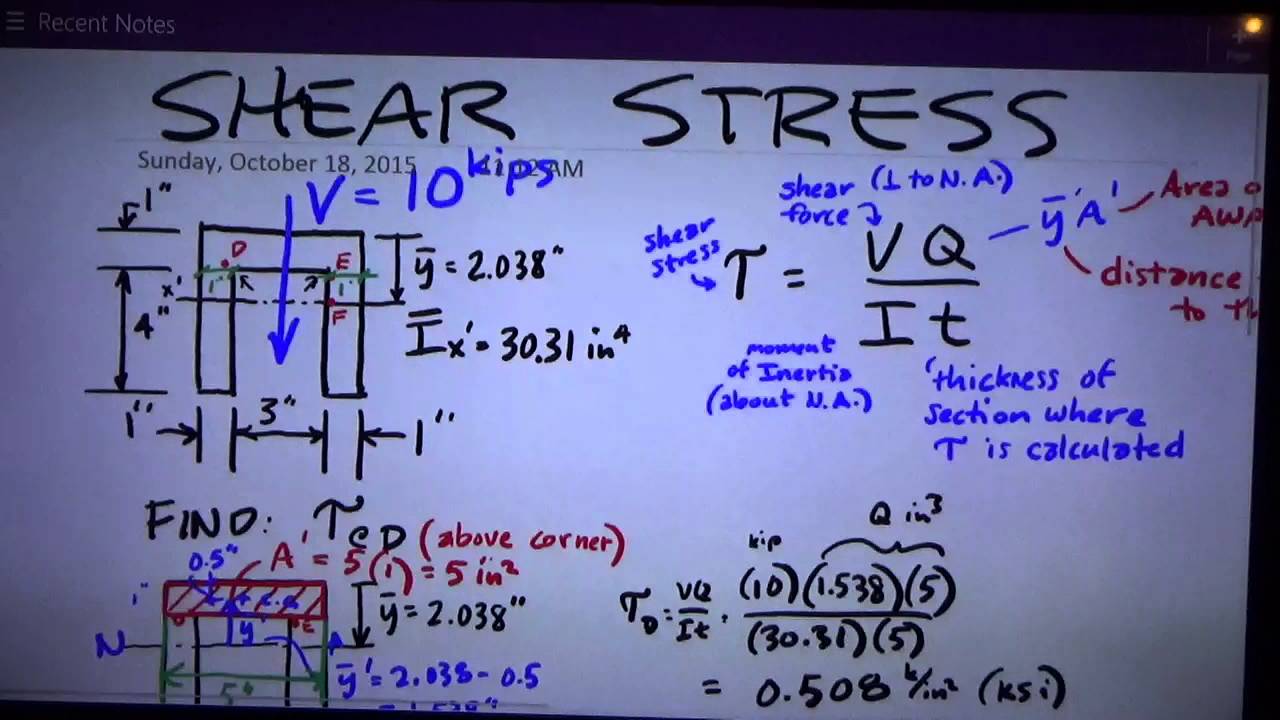 Recent Notes
SHEAR STRESS
Sunday, October 18, 2015 AM
V = 10 kips
1"
D
E
1"
1"
x'
F
4"
ȳ = 2.038"
Īx' = 30.31 in⁴
1"
3"
1"
shear force (⊥ to N.A.)
shear stress
τ = VQ / It
ȳ'A'
Area o
AWA
distance
to th
moment
of Inertia
(about N.A.)
thickness of
section where
τ is calculated
FIND: τ@D (above corner)
0.5"
A' = 5(1) = 5 in²
1"
ȳ = 2.038"
E
N
A
ȳ'
5"
ȳ' = 2.038 - 0.5
= 1.538"
kip
Q in³
τD = VQ/It = (10)(1.538)(5) / (30.31)(5)
= 0.508 k/in² (ksi)